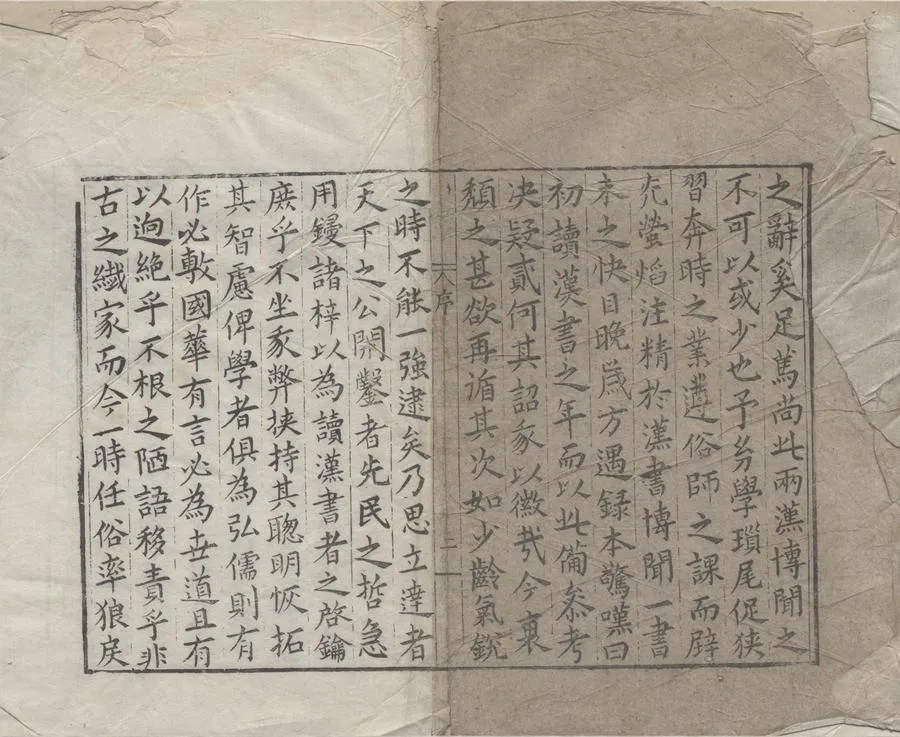 之辭奚足萬尚此兩漢博聞之
不可以或少也予幼學瑣尾促狹
習奔時之業遵俗師之課而辟
光螢熖注精於漢書博聞一書
未之快目晚歲方遇録本驚嘆曰
初讀漢書之年而以此備叅考
决疑貳何其詔豖以徽哉今衰
頽之甚欲再遁其次如少齡氣銳
大序
二
之時不能一強逮矣乃思立達者
天下之公開鑿者先民之哲急
用鋟諸梓以為讀漢書者之啓鑰
庶乎不坐豖弊挾持其聰明恢拓
其智慮俾學者俱為弘儒則有
作必斅國華有言必為世道且有
以逈絶乎不根之陋語移責乎非
古之纎家而今一時任俗率狼戾